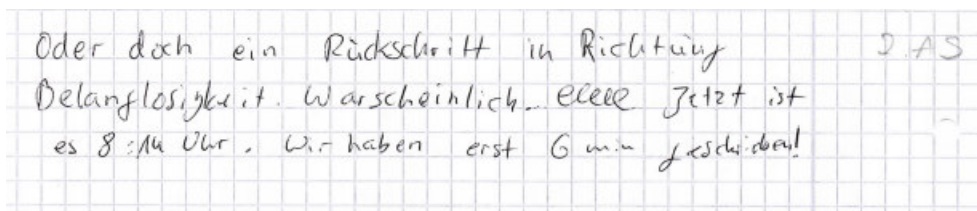 Oder doch ein Rückschritt in Richtung
Belanglosigkeit. Warscheinlich. eeee Jetzt ist
es 8:14 Uhr. Wir haben erst 6 min geschrieben!